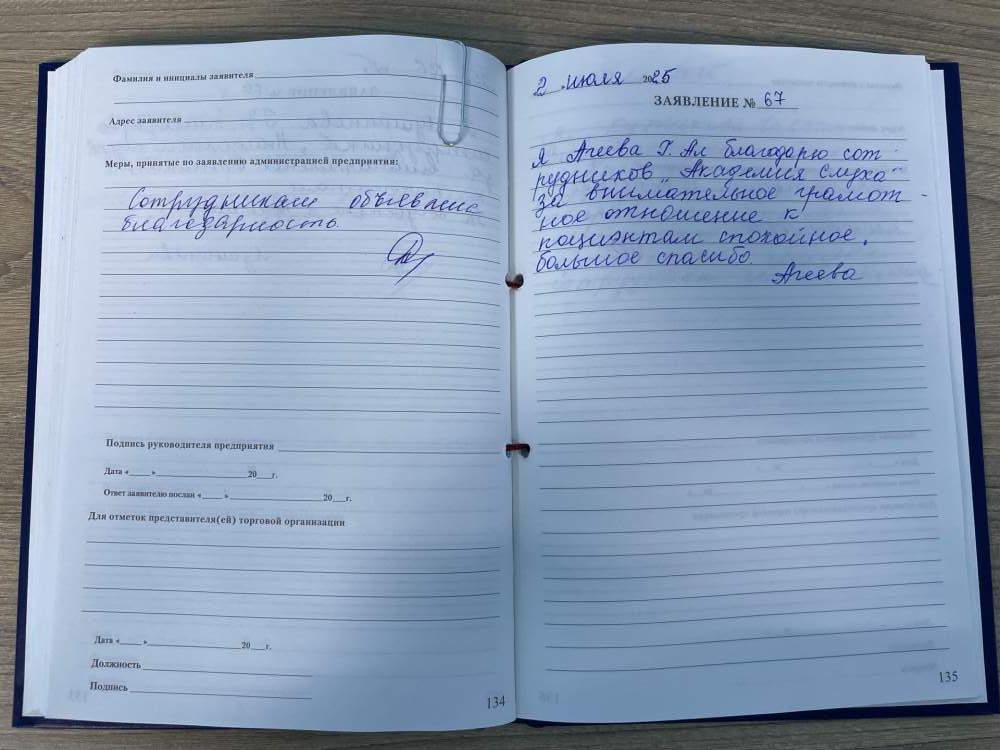 Фамилия и инициалы заявителя
Адрес заявителя
Меры, принятые по заявлению администрацией предприятия:
Сотрудникам объявлена
благодарность.
Подпись руководителя предприятия
Дата «____» ____ 20___г.
Ответ заявителю послан «____» ____ 20___г.
Для отметок представителя(ей) торговой организации
Дата «____» ____ 20___г.
Должность
Подпись
134
2 июля 2025
ЗАЯВЛЕНИЕ № 67
Я Агеева Г. Ал благодарю сот
рудников „Академия слуха"
за внимательное грамот-
ное отношение к
пациэнтам спокойное.
большое спасибо.
Агеева
135